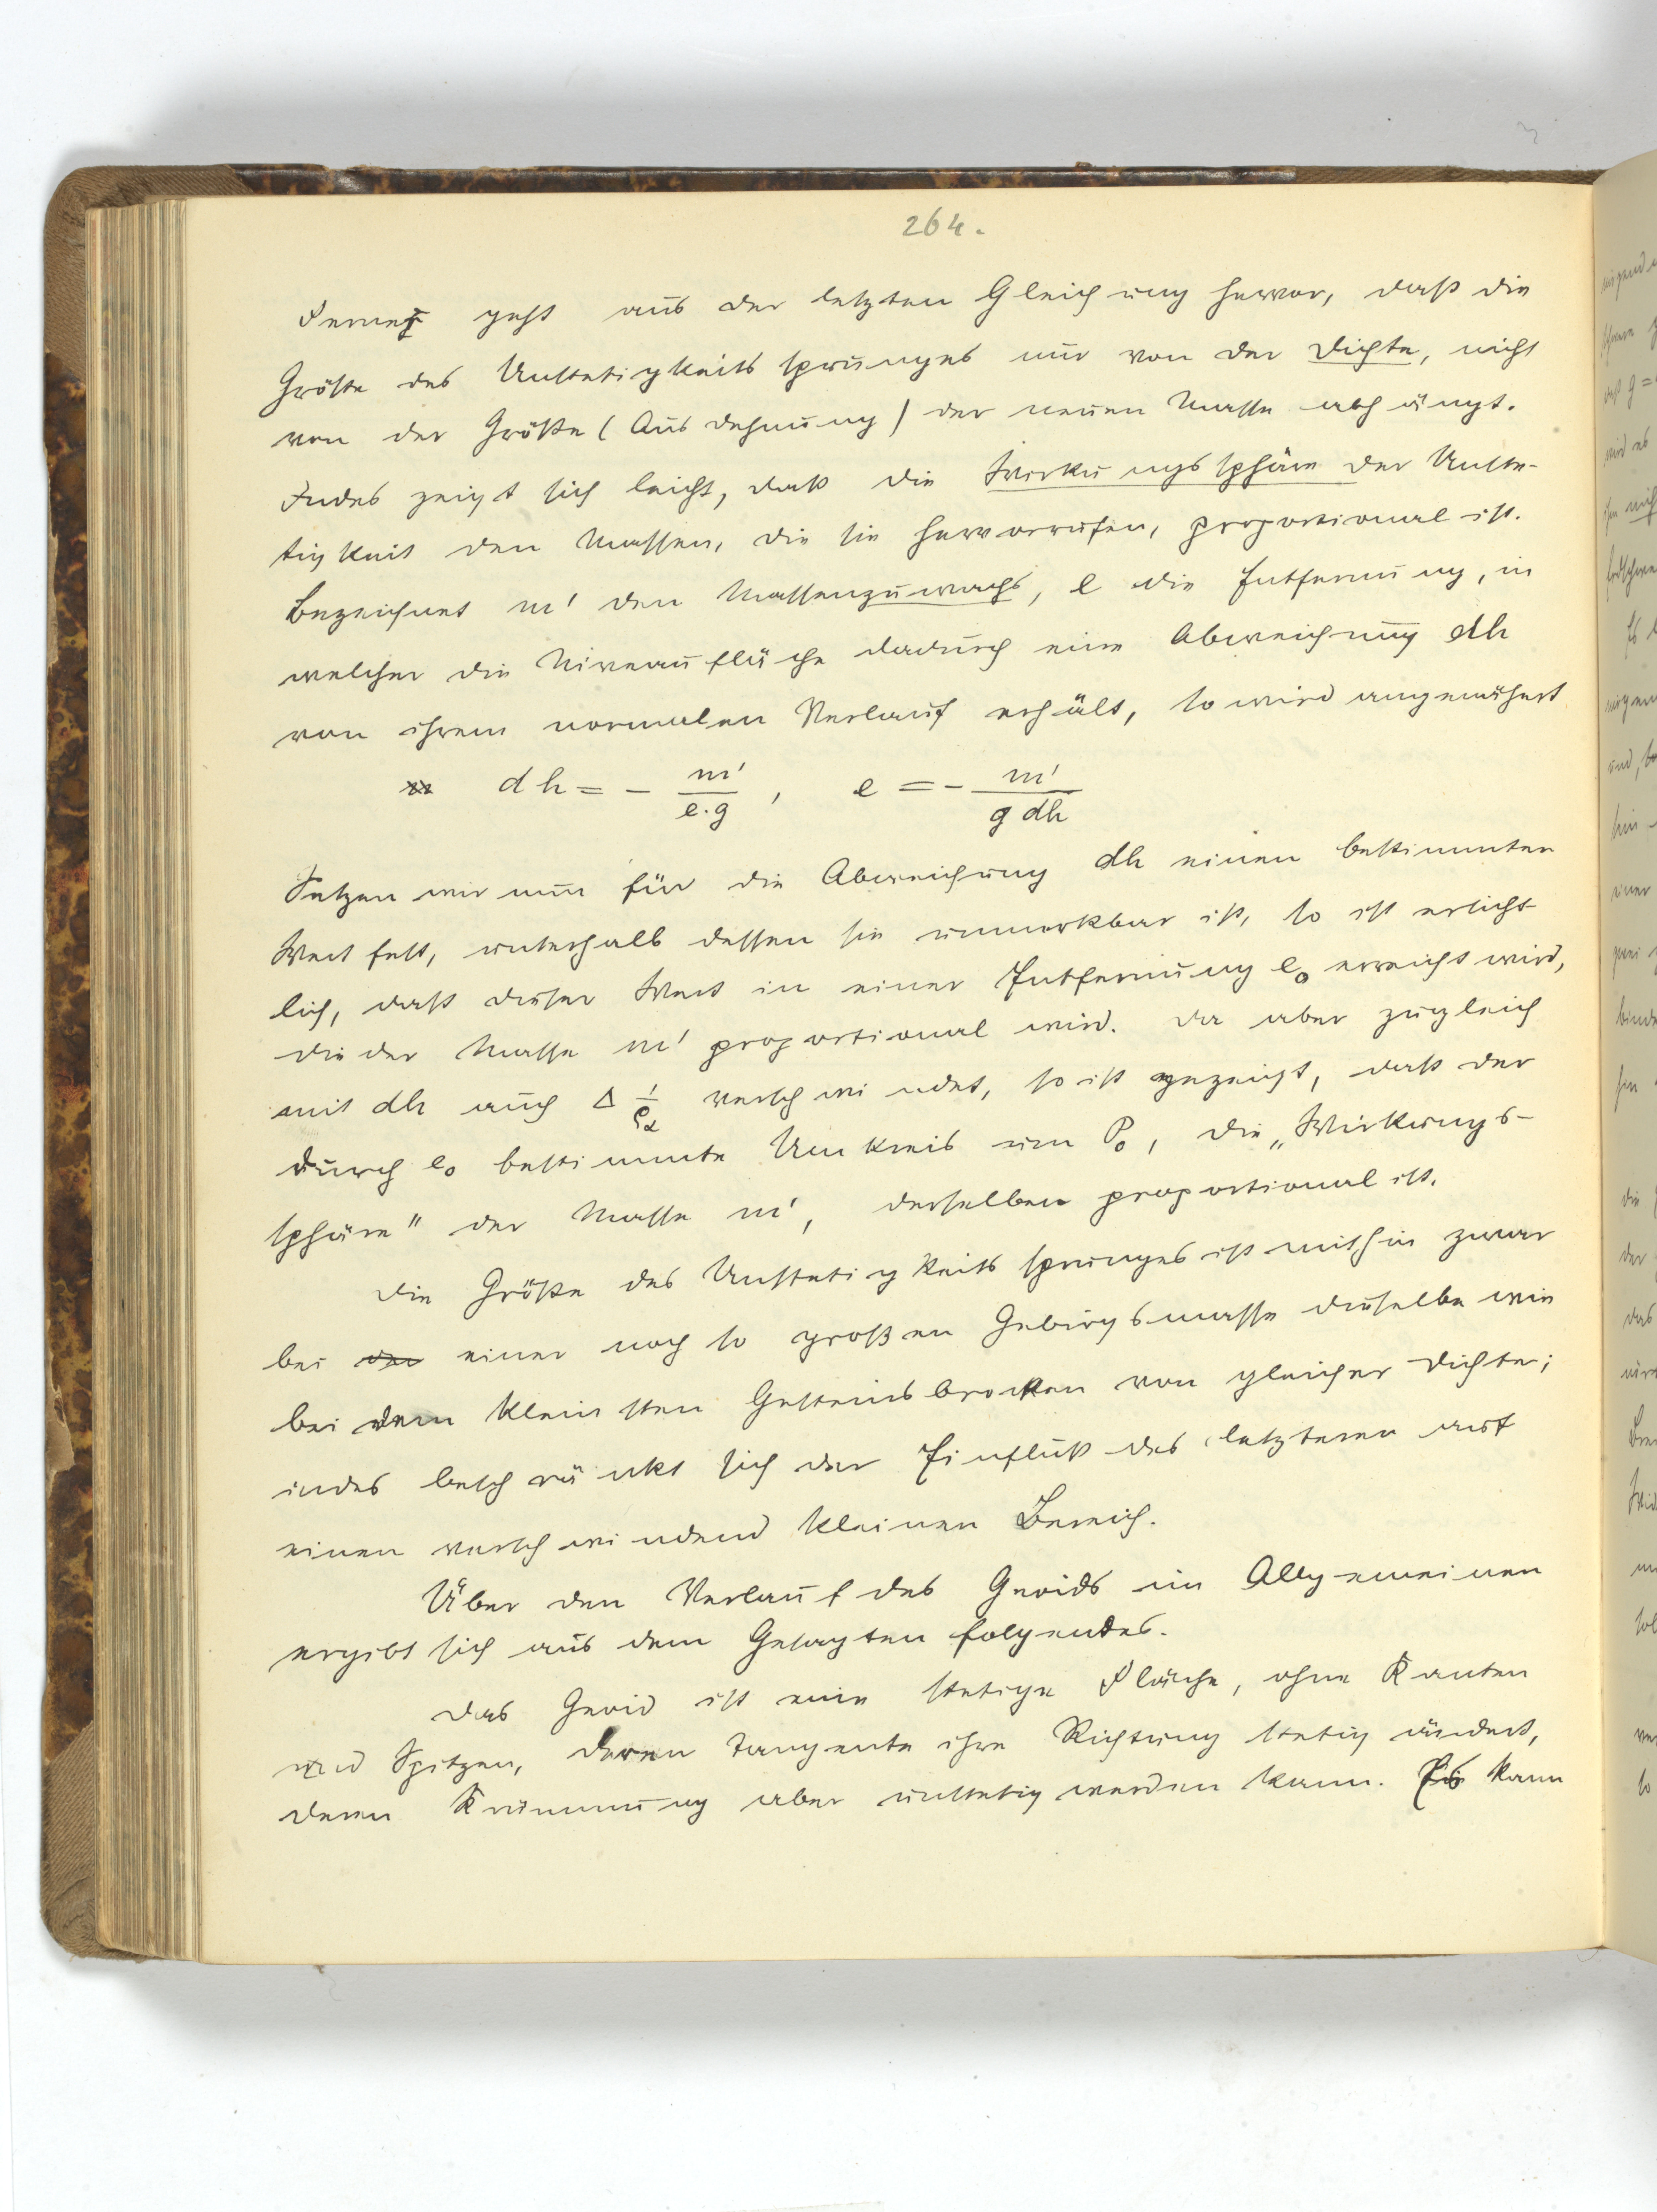 264.
Ferner geht aus der letzten Gleichung hervor, daß die
Größe des Unstetigkeitssprunges nur von der Dichte, nicht
von der Größe (Ausdehnung) der neuen Masse abhängt.
Indes zeigt sich leicht, daß die Wirkungssphäre der Unste-
tigkeit den Massen, die sie hervorrufen, proportional ist.
Bezeichnet m' den Massenzuwachs, e die Entfernung, in
welcher die Niveaufläche dadurch eine Abweichung dh
von ihrem normalen Verlauf erhält, so wird angenähert
dh = - m'/e.g , e = - m'/g dh
Setzen wir nun für die Abweichung dh einen bestimmten
Wert fest, unterhalb dessen sie unmerkbar ist, so ist ersicht-
lich, daß dieser Wert in einer Entfernung e₀ erreicht wird,
die der Masse m' proportional wird. Da aber zugleich
mit dh auch Δ 1/ρα verschwindet, so ist gezeigt, daß der
durch e₀ bestimmte Umkreis um P₀, die „Wirkungs-
sphäre" der Masse m', derselben proportional ist.
Die Größe des Unstetigkeitssprunges ist mithin zwar
bei der einer noch so großen Gebirgsmasse dieselbe wie
bei dem kleinsten Gesteinsbrocken von gleicher Dichte;
indes beschränkt sich der Einfluß des letzteren auf
einen verschwindend kleinen Bereich.
Über den Verlauf des Geoids im Allgemeinen
ergibt sich aus dem Gesagten folgendes.
Das Geoid ist eine stetige Fläche, ohne Kanten
und Spitzen, deren Tangente ihre Richtung stetig ändert,
deren Krümmung aber unstetig werden kann. Es kann